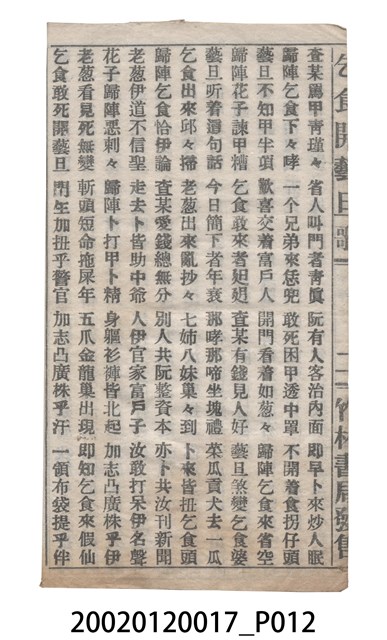 乞食開藝旦歌　二　竹林書局發售
查某罵甲青瑾々　省人叫門者青瞋　阮有人客治內面　即早卜來炒人眠
歸陣乞食下々哮　一个兄弟來恁兜　敢死困甲透中罩　不開着食拐仔頭
藝旦不知甲半項　歡喜交着富戶人　開門看着如葱々　歸陣乞食來省空
歸陣花子諫甲糟　乞食敢來者廷廷　查某有錢見人好　藝旦煞變乞食婆
藝旦听着灣句話　今日簡下者年衰　那哮那啼坐塊禮　菜瓜貢犬去一瓜
乞食出來邱々掃　老葱出來亂抄々　七姉八妹巢々到　卜來皆扭乞食頭
歸陣乞食恰伊論　查某愛錢總無分　別人共阮整資本　亦卜共汝刊新聞
老葱伊道不信聖　走去卜皆助中爺　人伊官家富戶子　汝敢打呆伊名聲
花子歸陣惡刺々　歸陣卜打甲卜精　身軀衫褲皆北起　加志凸廣株乎伊
老葱看見死無變　斬頭短命拖屎年　五爪金龍巢出現　即知乞食來假仙
乞食敢死開藝旦　門生加扭乎警官　加志凸廣株乎汗　一領布袋提乎伴
20020120017_P012